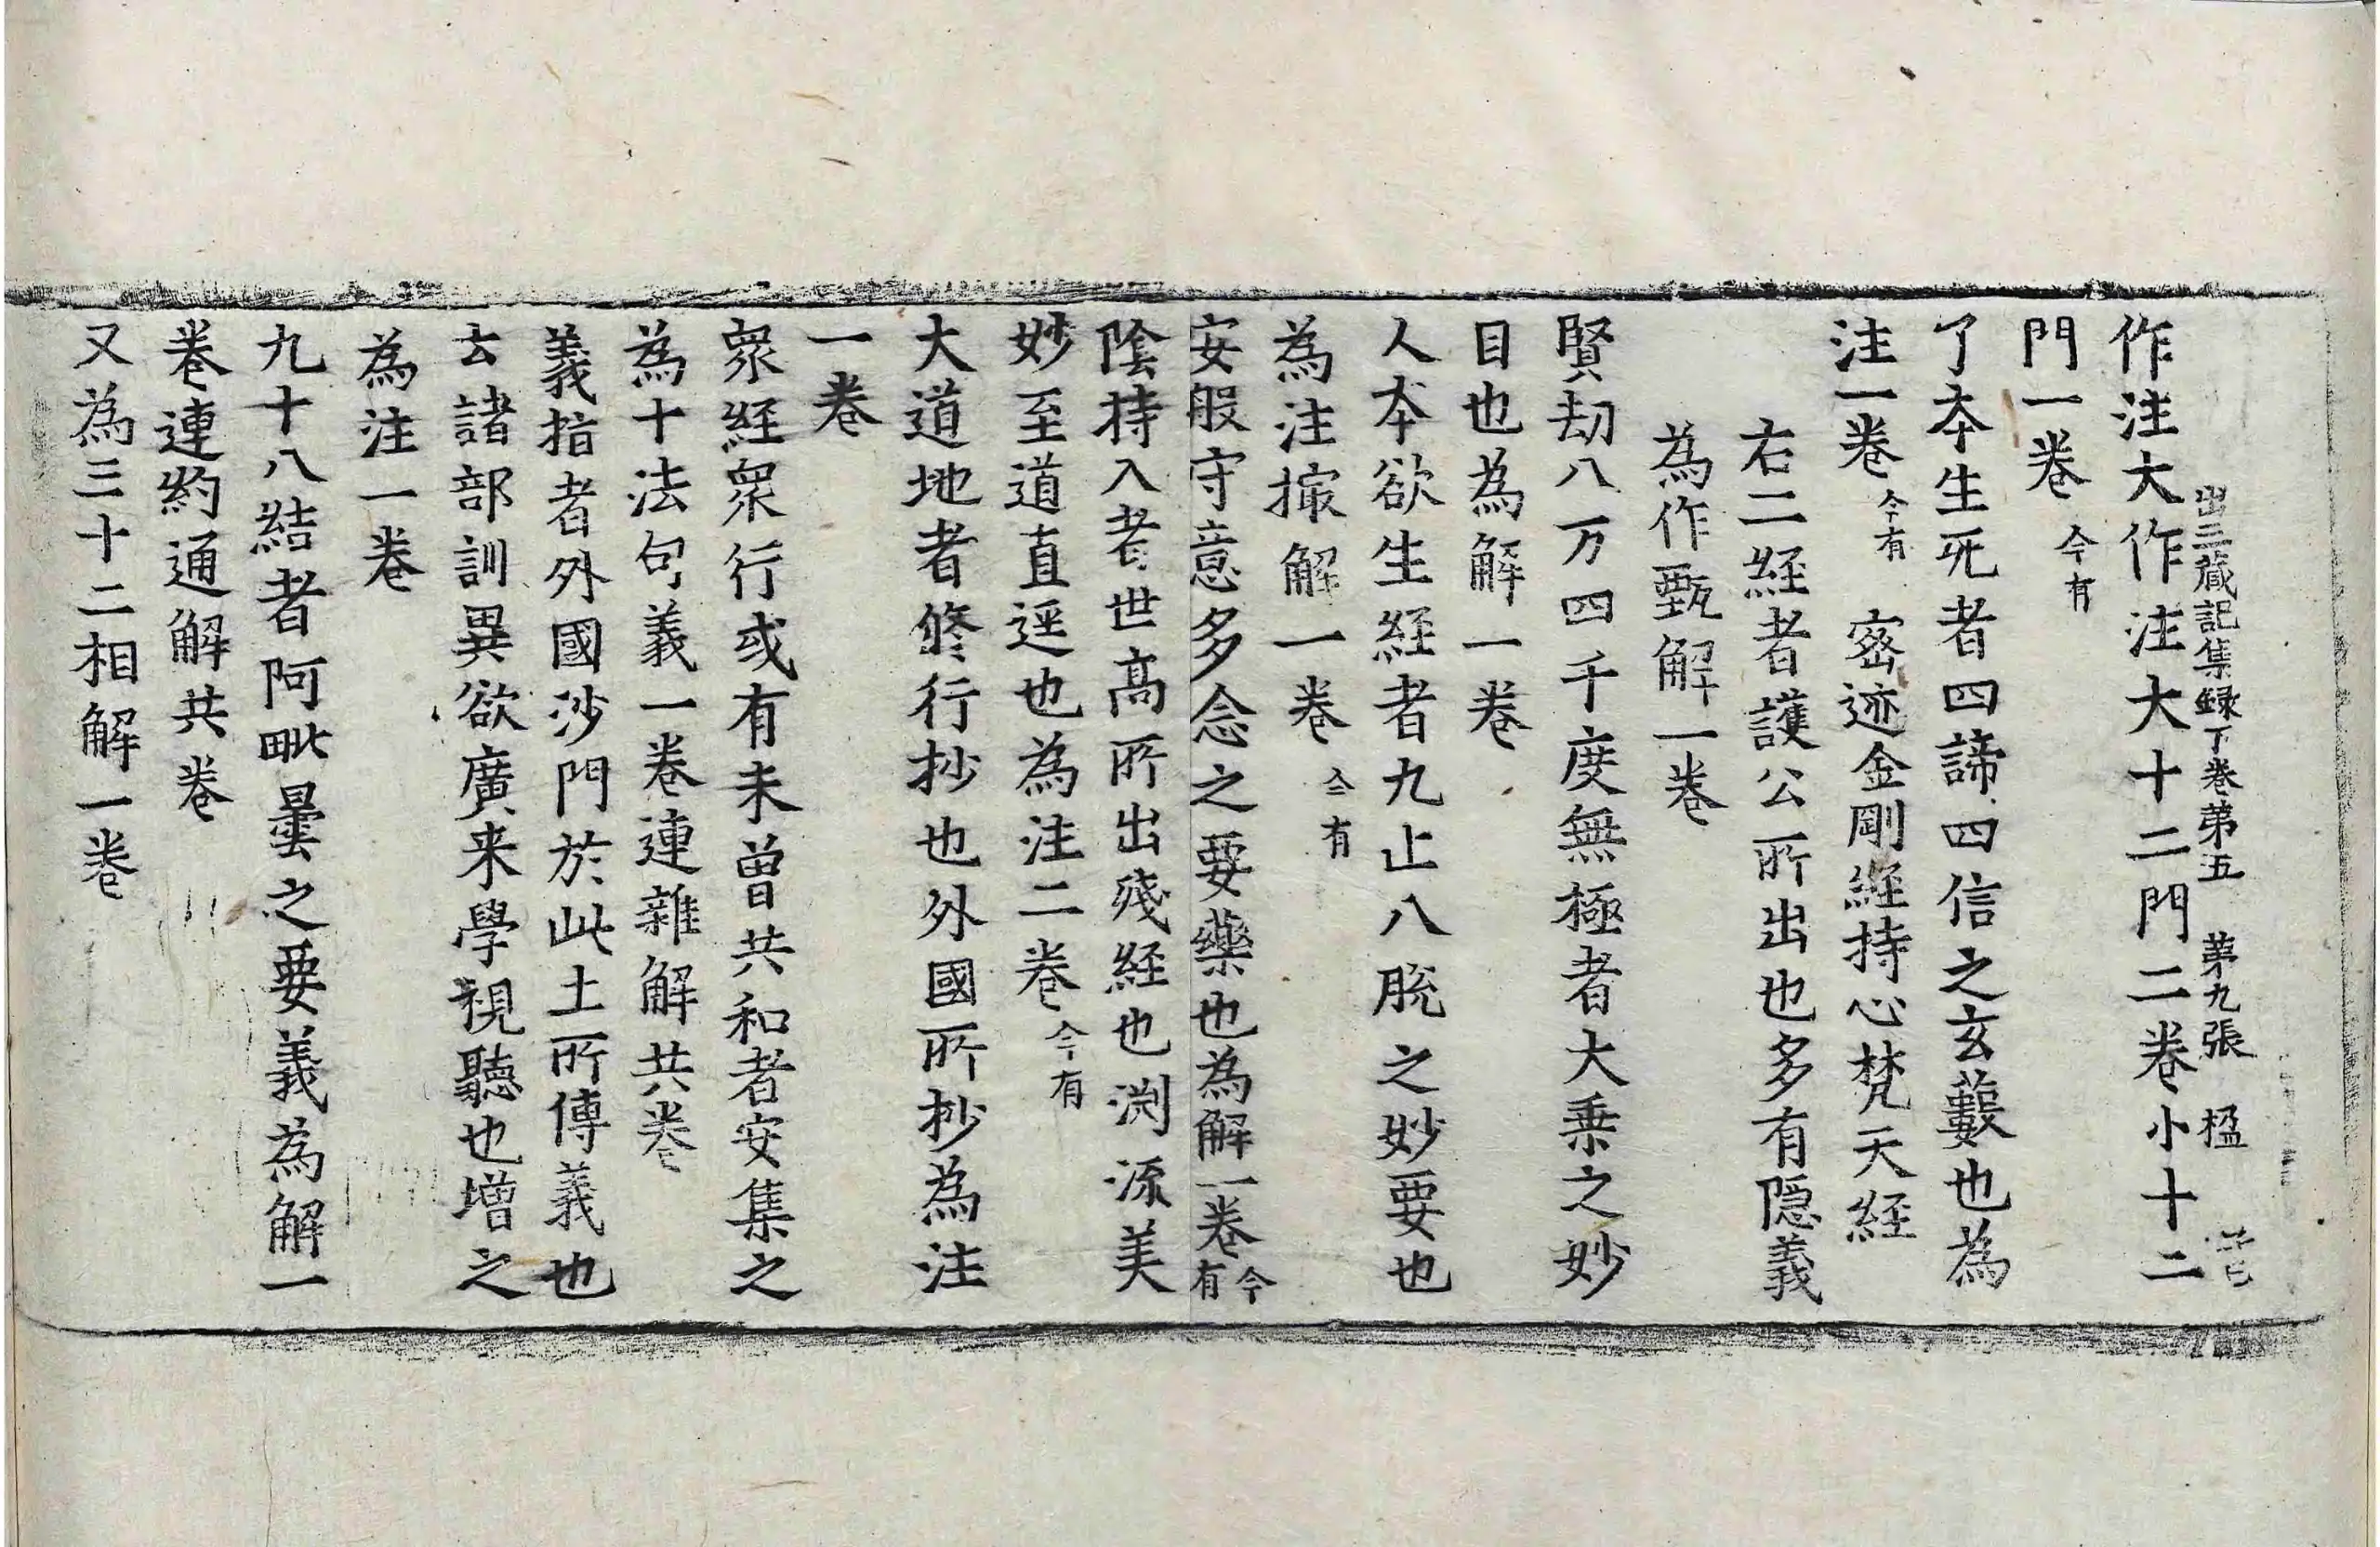 出三藏記集録下卷第五 第九張 楹
作注大作注大十二門二卷小十二
門一卷 今有
了夲生死者四諦四信之玄藪也為
注一卷 今有 密迹金剛經持心梵天經
右二経者護公所出也多有隱義
為作甄解一卷
賢劫八万四千度無極者大乗之妙
目也為解一卷
人夲欲生経者九止八脫之妙要也
為注撮解一卷 今有
安般守意多念之要藥也為解一卷 今有
陰持入者世高所出殘経也渕流美
妙至道直逕也為注二卷 今有
大道地者修行抄也外國所抄為注
一卷
眾経眾行或有未曾共和者安集之
為十法句義一卷連雜解共卷
義指者外國沙門於此土所傳義也
云諸部訓異欲廣来學視聽也增之
為注一卷
九十八結者阿毗曇之要義為解一
卷連約通解共卷
又為三十二相解一卷